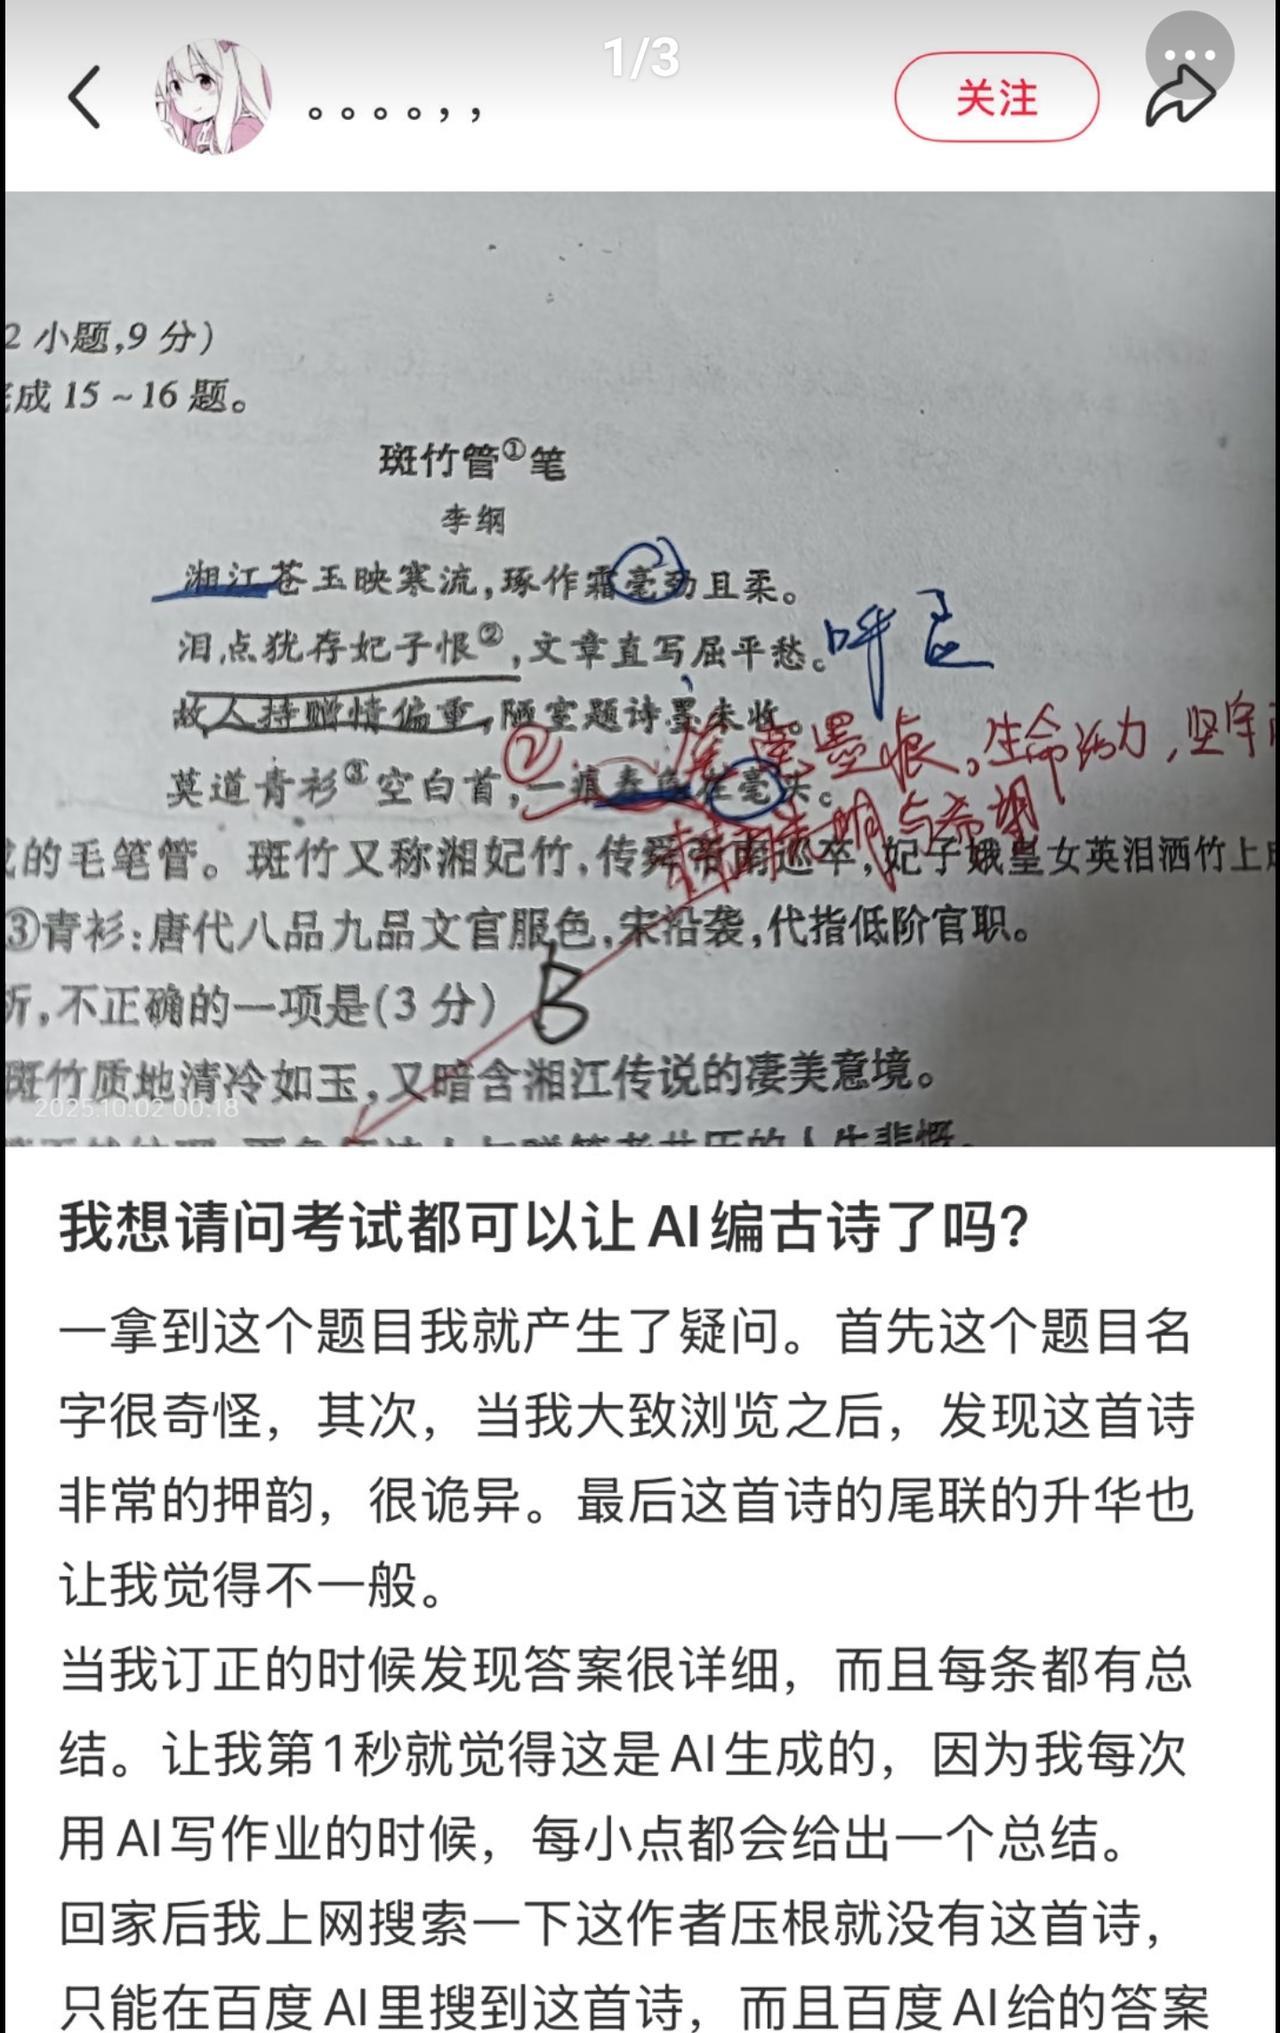 1/3
。。。。，，
关注
2 小题,9 分)
成 15～16 题。
斑竹管①笔
李纲
湘江苍玉映寒流,琢作霜毫劲且柔。
泪点犹存妃子恨②,文章直写屈平愁。
呼应
故人持赠情偏重,陋室题诗墨未收。
墨痕。生命活力,坚守
莫道青衫③空白首,一痕春色在毫头。
②
与希望
的毛笔管。斑竹又称湘妃竹,传舜帝南巡卒,妃子娥皇女英泪洒竹上
③青衫:唐代八品九品文官服色,宋沿袭,代指低阶官职。
析,不正确的一项是(3 分)
B
斑竹质地清冷如玉,又暗含湘江传说的凄美意境。
2025.10.02 00:18
的人生悲慨。
我想请问考试都可以让AI编古诗了吗?
一拿到这个题目我就产生了疑问。首先这个题目名
字很奇怪，其次，当我大致浏览之后，发现这首诗
非常的押韵，很诡异。最后这首诗的尾联的升华也
让我觉得不一般。
当我订正的时候发现答案很详细，而且每条都有总
结。让我第1秒就觉得这是AI生成的，因为我每次
用AI写作业的时候，每小点都会给出一个总结。
回家后我上网搜索一下这作者压根就没有这首诗，
只能在百度AI里搜到这首诗，而且百度AI给的答案